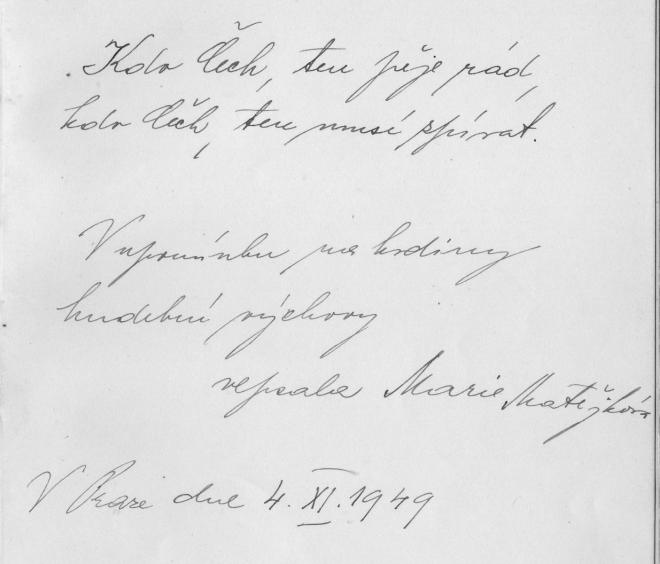 Kdo Čech, ten pěje rád,
kdo Čech, ten musí zpívat.
Vzpomínku na hodiny
hudební výchovy
vepsala Marie Matějková
V Praze dne 4. XI. 1949